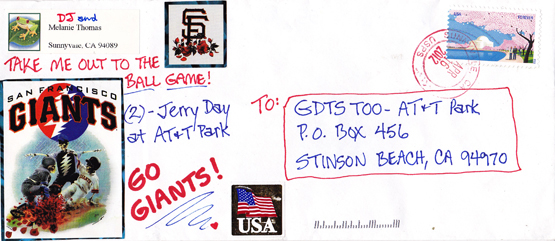 DJ and
Melanie Thomas
Sunnyvale, CA 94089
TAKE ME OUT TO THE
BALL GAME!
SF
SAN FRANCISCO
GIANTS
(2) - Jerry Day
at AT&T Park
GO
GIANTS!
USA
APR
2012
TO:
GDTS TOO - AT&T Park
P.O. BOX 456
STINSON BEACH, CA 94970